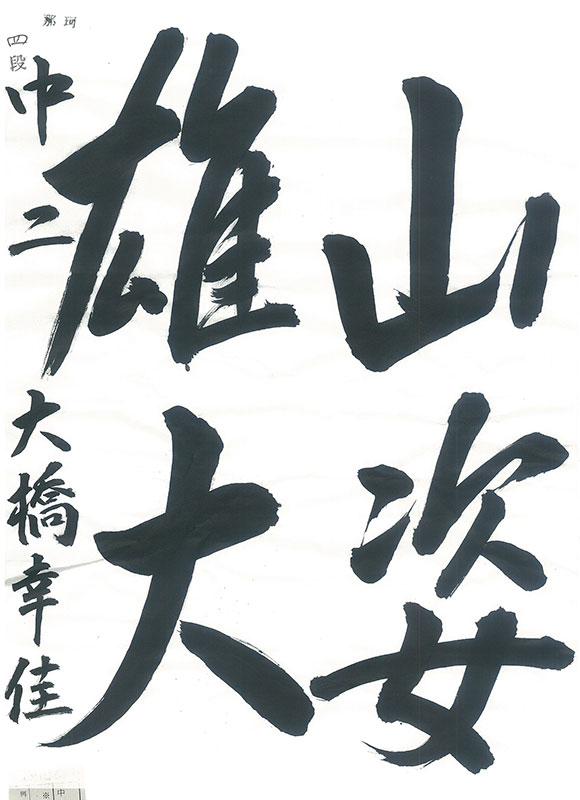 山姿
雄大
四段
中二 大橋幸佳